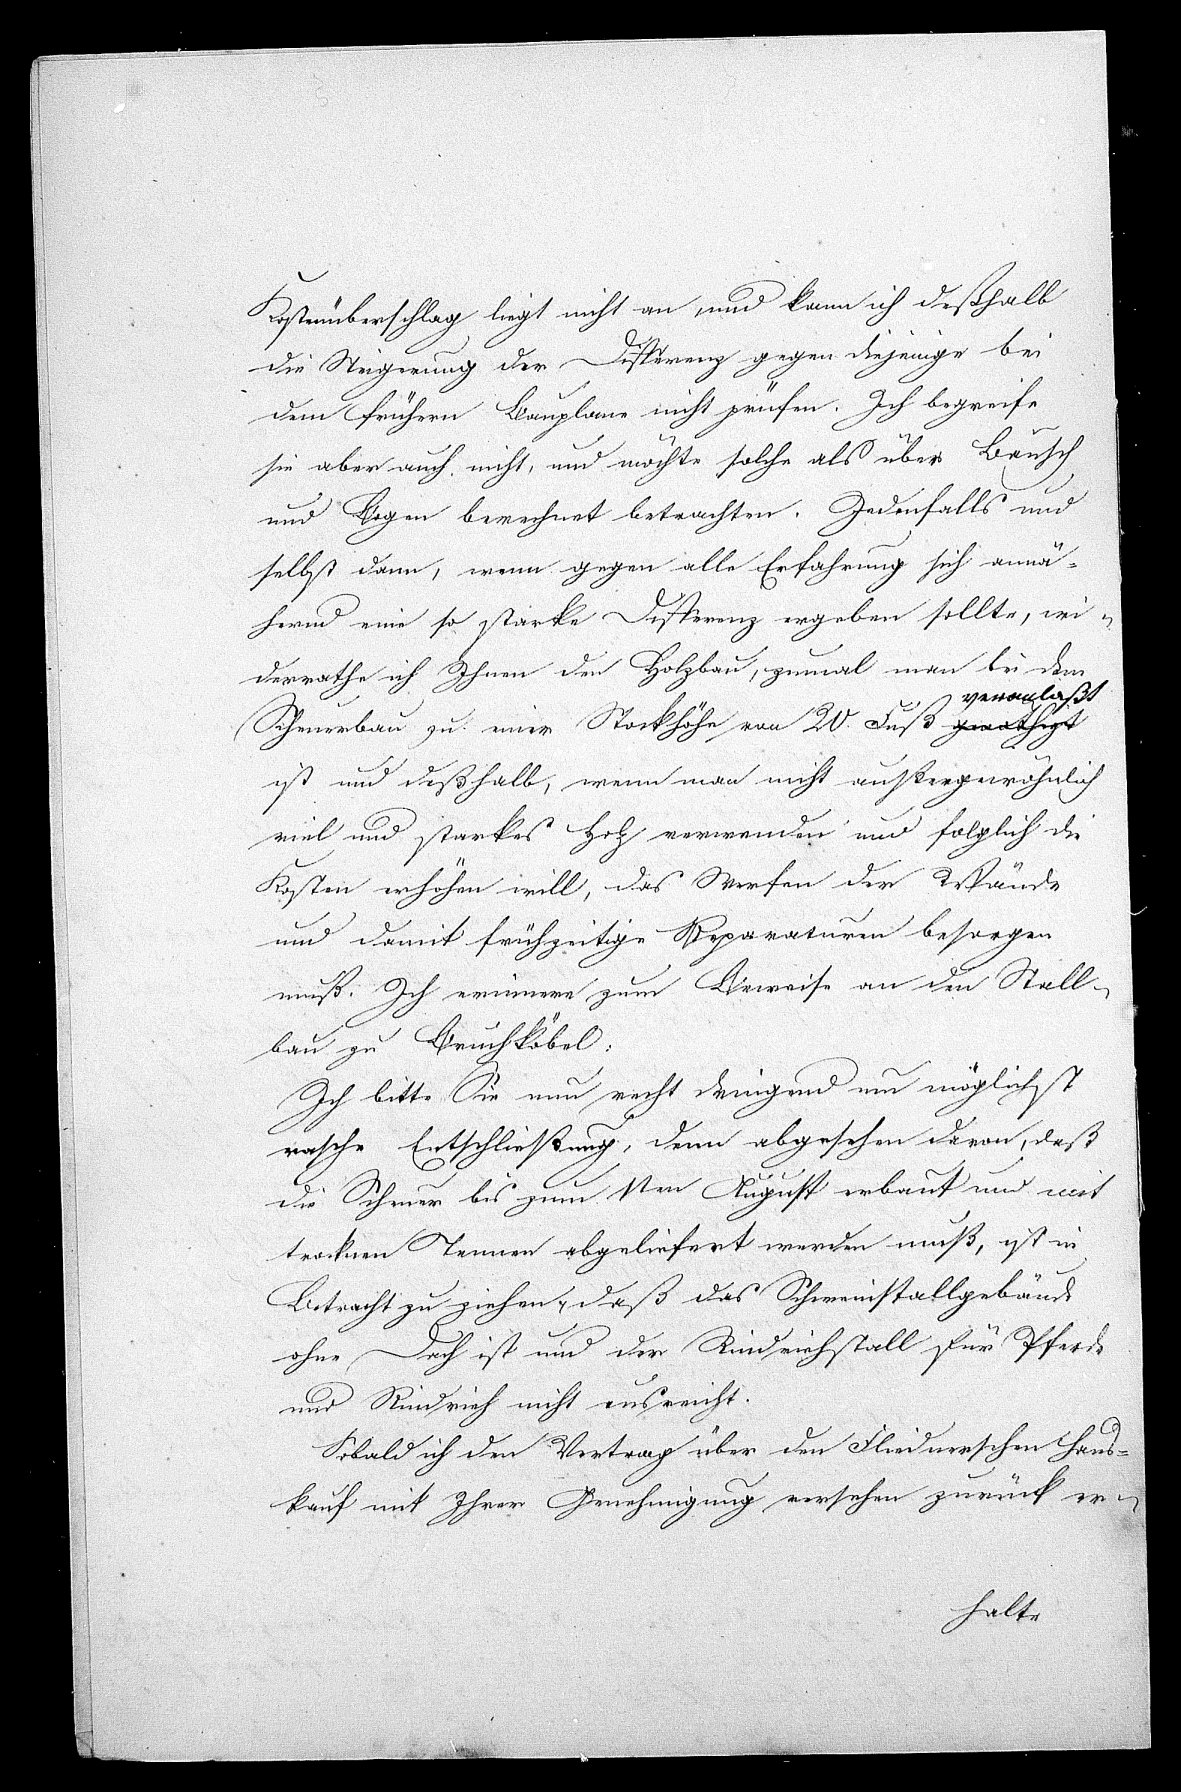 Kostenüberschlag liegt nicht an, und kann ich deßhalb
die Steigerung der Differenz gegen diejenige bei
dem frühern Bauplane nicht prüfen. Ich begreife
sie aber auch nicht, und möchte solche als über Bausch
und Bogen berechnet betrachten. Jedenfalls und
selbst dann, wenn gegen alle Erfahrung sich annä-
hernd eine so starke Differenz ergeben sollte, wi-
derrathe ich Ihnen den Holzbau, zumal man bei dem
veranlaßt
Scheuerbau zu einer Stockhöhe von 20 Fuß genöthigt
ist und deßhalb, wenn man nicht außergewöhnlich
viel und starkes Holz verwenden und folglich die
Kosten erhöhen will, das Werfen der Wände
und damit frühzeitige Reparaturen besorgen
muß. Ich erinnere zum Beweise an den Stall-
bau zu Bruchköbel.
Ich bitte Sie nun recht dringend um möglichst
rasche Entschließung, denn abgesehen davon, daß
die Scheuer bis zum 1ten August erbaut und mit
trocknen Tennen abgeliefert werden muß, ist in
Betracht zu ziehen, daß das Schweinstallgebäude
ohne Dach ist und der Rindviehstall für Pferde
und Rindvieh nicht ausreicht.
Sobald ich den Vertrag über den Fliednerschen Haus-
kauf mit Ihrer Genehmigung versehen zurück er-
halte